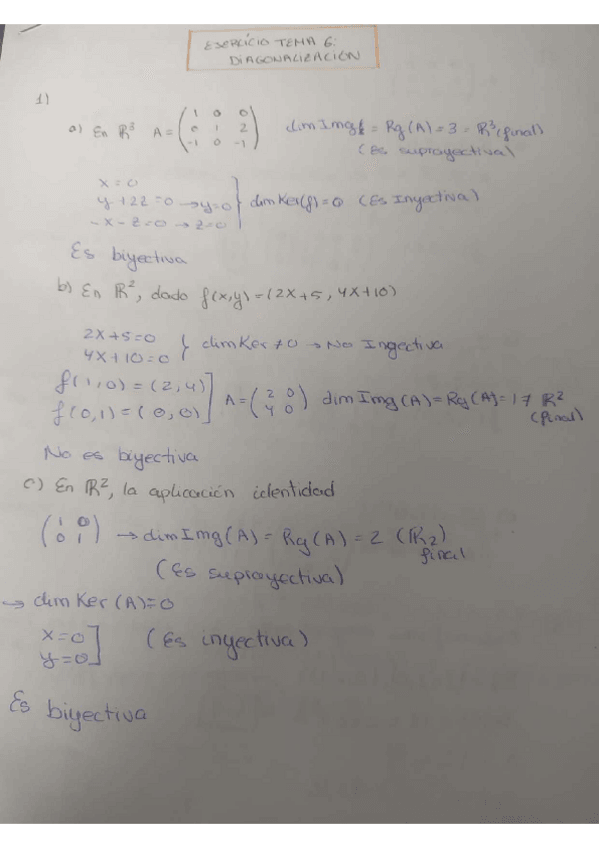 EJERCICIO TEMA 6:
DIAGONALIZACIÓN
1)
a) En ℝ³ A = (1 0 0 / 0 1 2 / -1 0 -1) dim Img f = Rg(A) = 3 = ℝ³ (final)
(Es suprayectiva)
x = 0
y + 2z = 0 → y = 0
-x - z = 0 → z = 0 } dim Ker(f) = 0 (Es Inyectiva)
Es biyectiva
b) En ℝ², dado f(x,y) = (2x+5, 4x+10)
2x+5=0
4x+10=0 } dim Ker ≠ 0 → No Inyectiva
f(1,0) = (2,4)
f(0,1) = (0,0) ] A = (2 0 / 4 0) dim Img(A) = Rg(A) = 1 ≠ ℝ²
(final)
No es biyectiva
c) En ℝ², la aplicación identidad
(1 0 / 0 1) → dim Img(A) = Rg(A) = 2 (ℝ2)
final
(Es suprayectiva)
→ dim Ker (A)=0
x=0
y=0 ] (Es inyectiva)
Es biyectiva